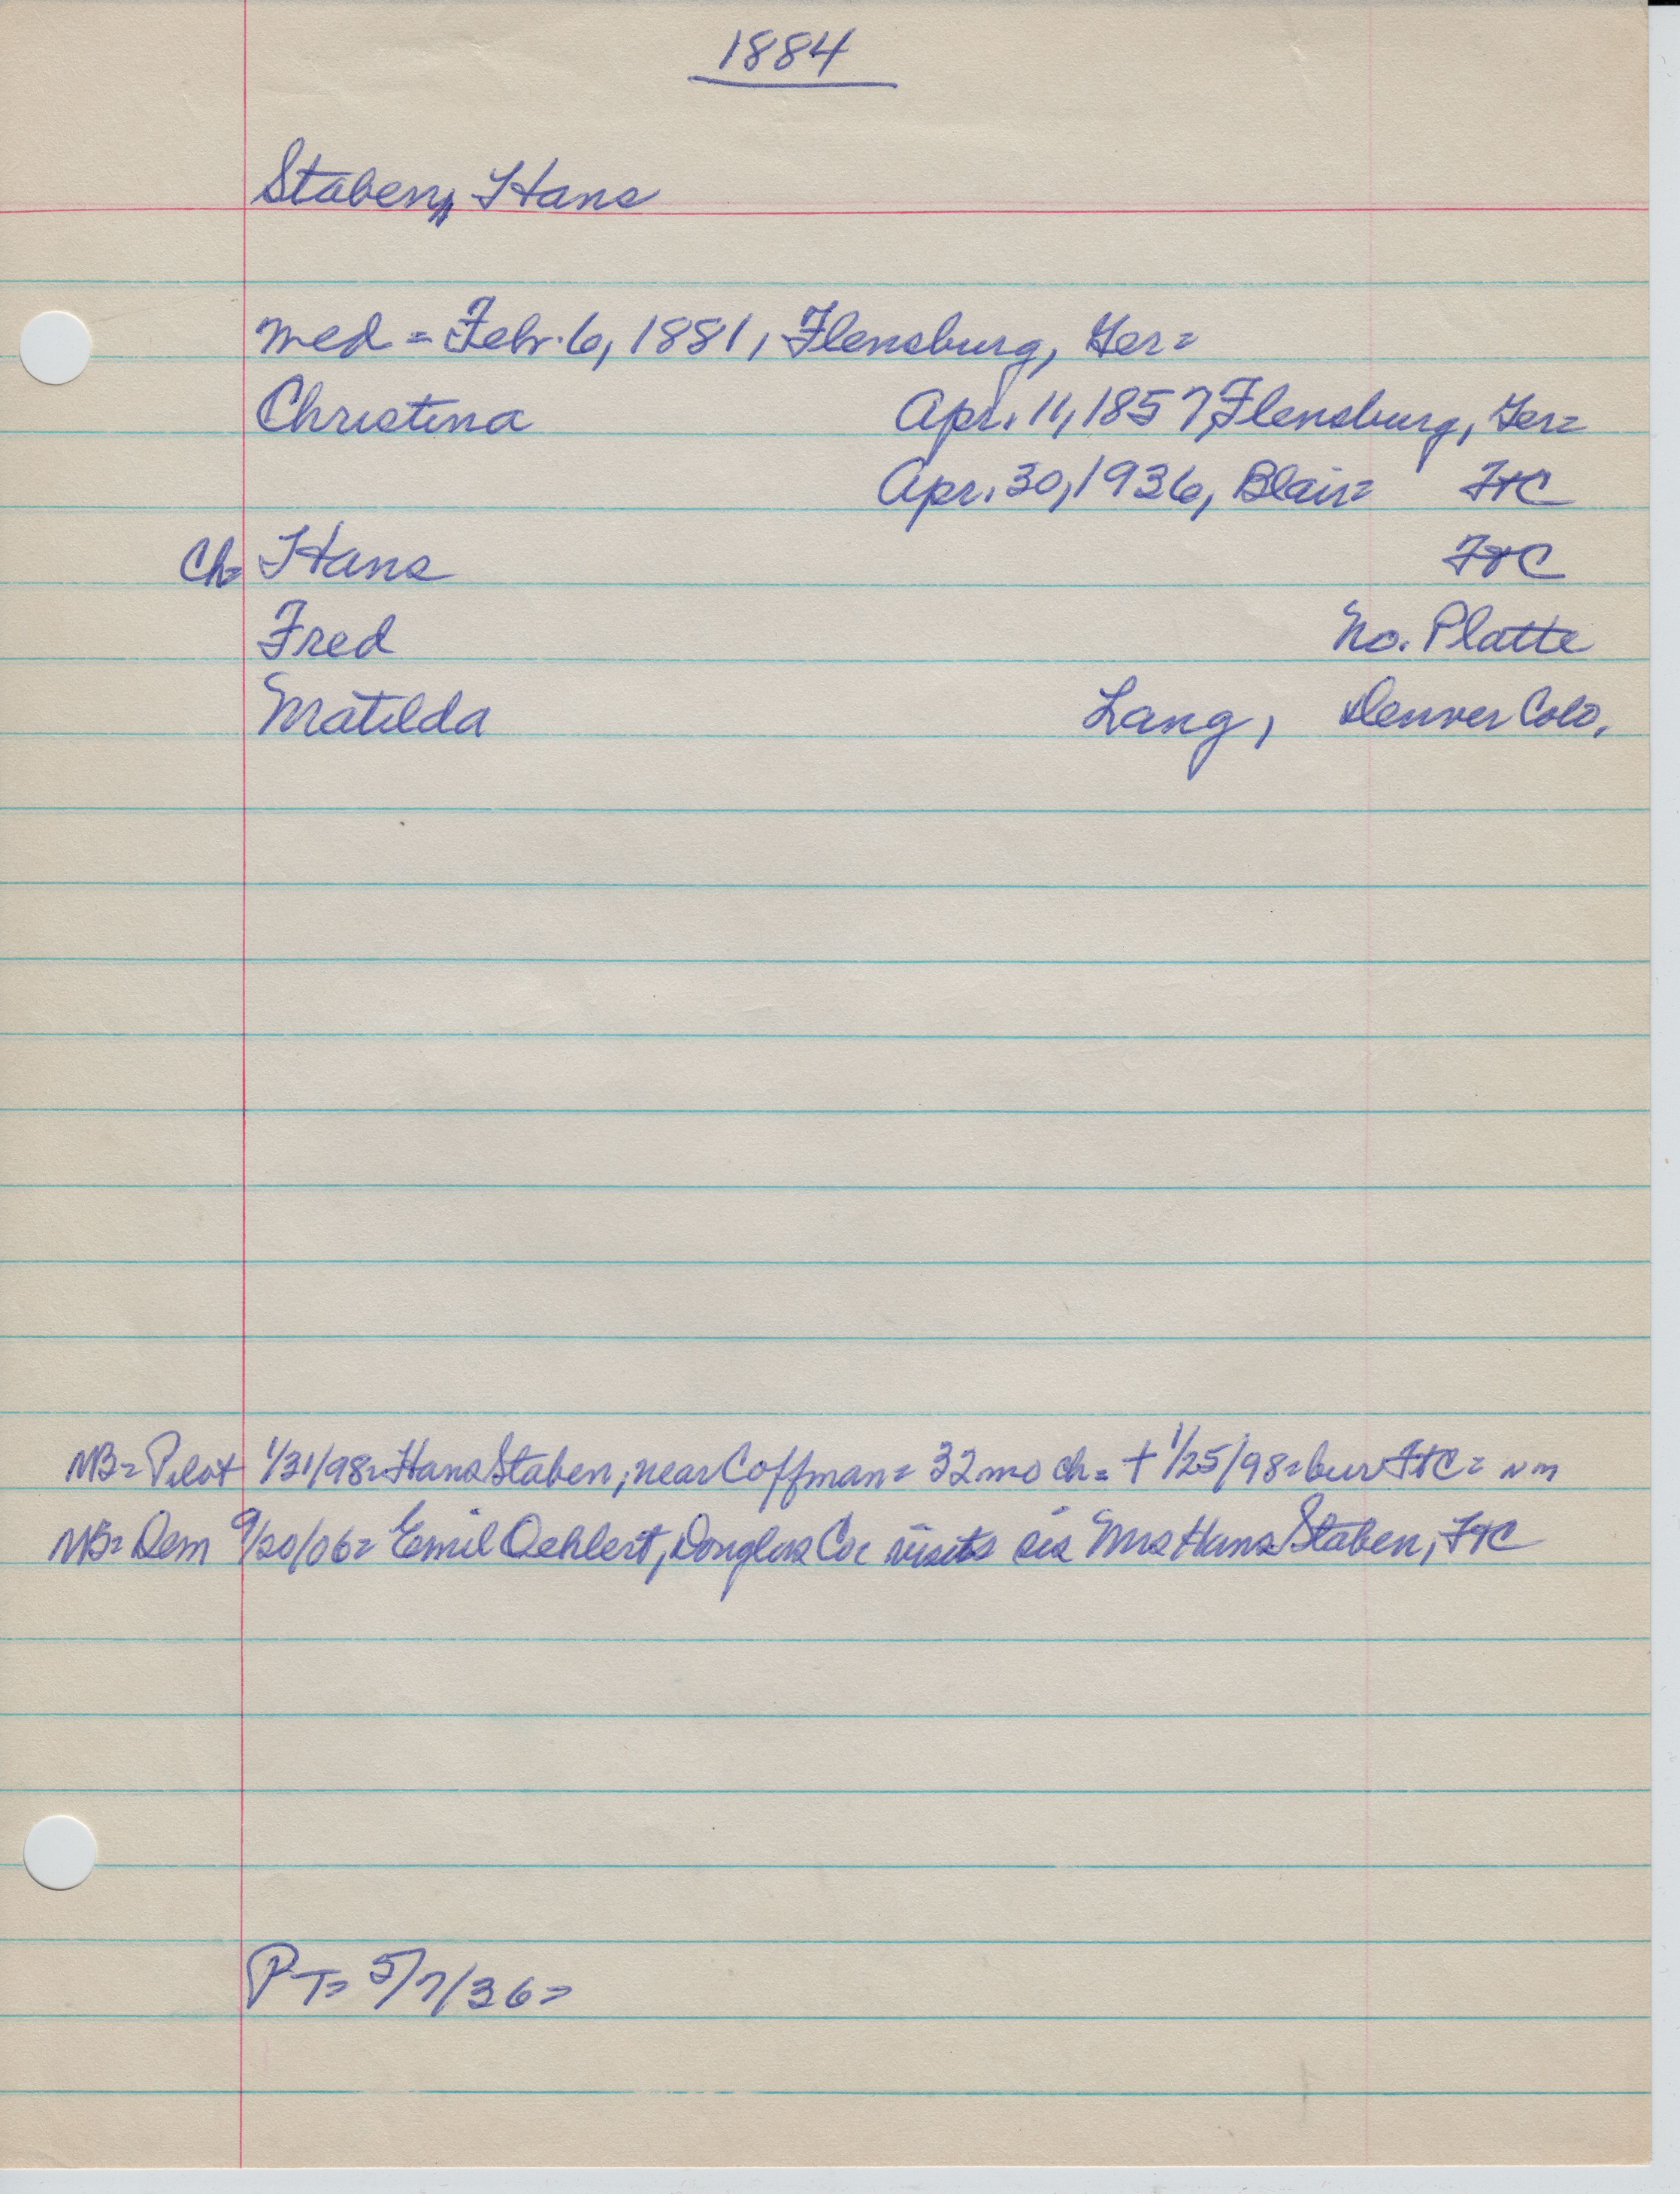 1884
Staben, Hans
med = Feb. 6, 1881, Flensburg, Ger=
Christina Apr. 11, 1857, Flensburg, Ger=
Apr. 30, 1936, Blair= FtC
Ch= Hans FtC
Fred No. Platte
Matilda Lang, Denver Colo.
MB= Pilot 1/31/98= Hans Staben, near Coffman= 32 mo ch= + 1/25/98= bur FtC= nm
MB= Dem 9/20/06= Emil Oehlert, Douglas Co= visits sis Mrs Hans Staben, FtC
PT= 5/7/36=